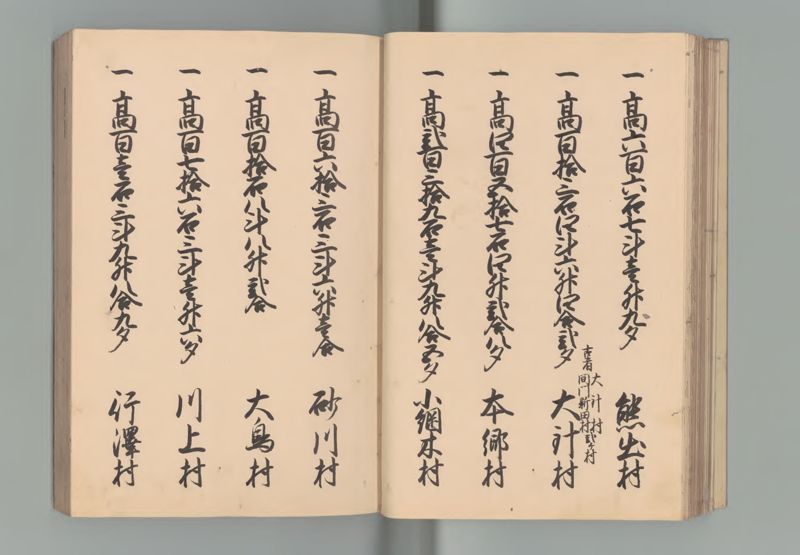 一高六百六石七斗壹升九夕 熊出村
一高百拾三石四斗六升四合貳夕 大針村
古者 大針村
同所新田村 貳ケ村
一高四百五拾七石四升貳合八夕 本郷村
一高貳百三拾九石壹斗九升八合五夕 小網木村
一高百六拾三石三斗六升壹合 砂川村
一高百拾石八斗八升貳合 大鳥村
一高百七拾六石三斗壹升六夕 川上村
一高百壹石三斗九升八合九夕 行澤村